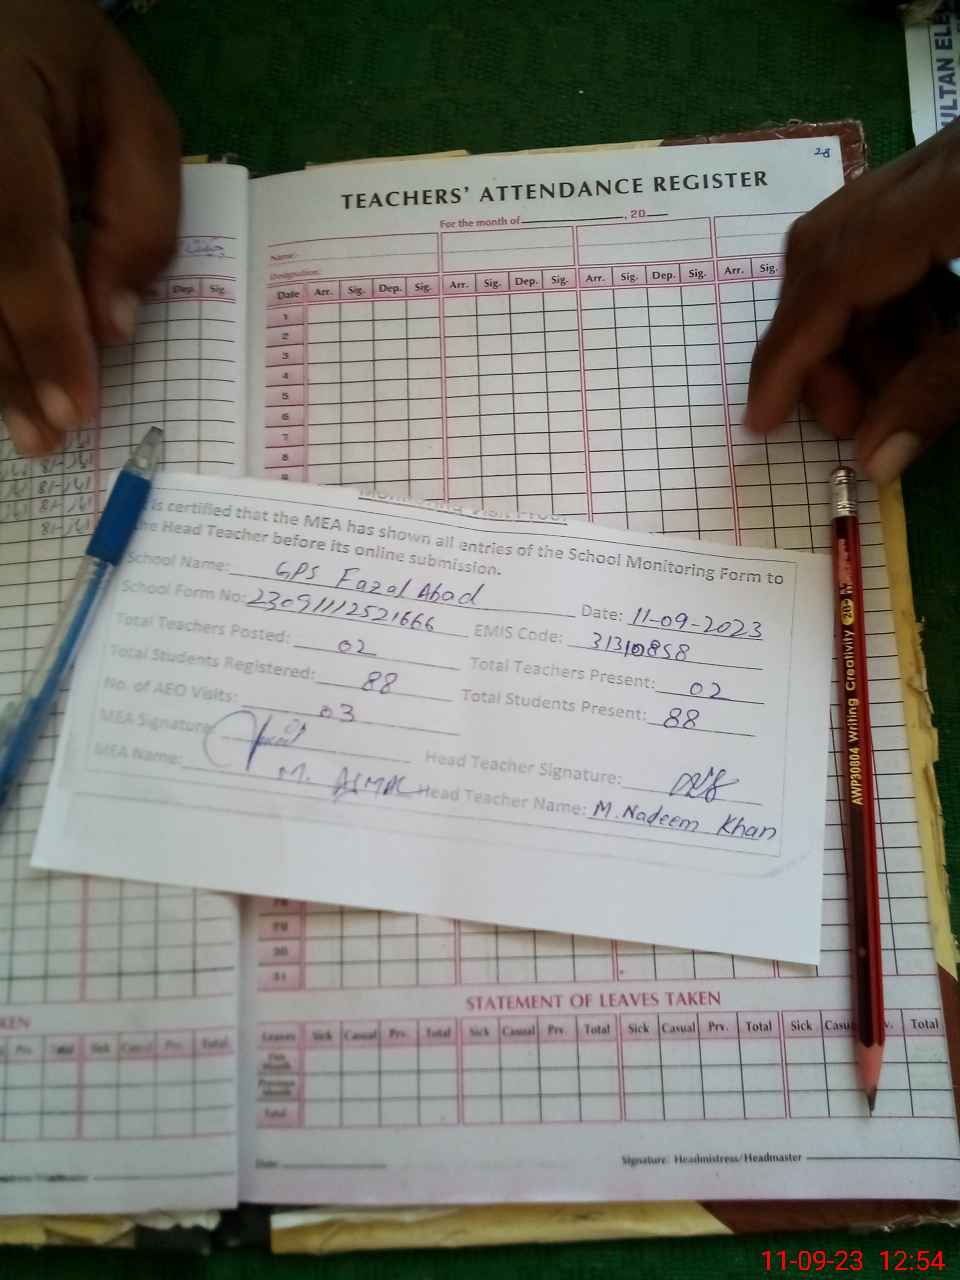 ULTAN ELE
28
TEACHERS' ATTENDANCE REGISTER
For the month of , 20
Name:
Designation:
Dep. Sig.
Date Arr. Sig. Dep. Sig. Arr. Sig. Dep. Sig. Arr. Sig. Dep. Sig. Arr. Sig.
1
2
3
4
5
6
7
8
Monitoring Visit Proof
is certified that the MEA has shown all entries of the School Monitoring Form to
the Head Teacher before its online submission.
School Name: GPS Fazal Abad Date: 11-09-2023
School Form No: 23091112521666 EMIS Code: 31310858
Total Teachers Posted: 02 Total Teachers Present: 02
Total Students Registered: 88 Total Students Present: 88
No. of AEO Visits: 03
MEA Signature: Head Teacher Signature:
MEA Name: M. Head Teacher Name: M. Nadeem Khan
AWP30804 Writing Creativity
29
30
31
STATEMENT OF LEAVES TAKEN
KEN
Prv. Total Sick Casual Prv. Total
Leaves Sick Casual Prv. Total Sick Casual Prv. Total Sick Casual Prv. Total Sick Casu v. Total
This Month
Previous Month
Total
Date
Signature: Headmistress/Headmaster
11-09-23 12:54